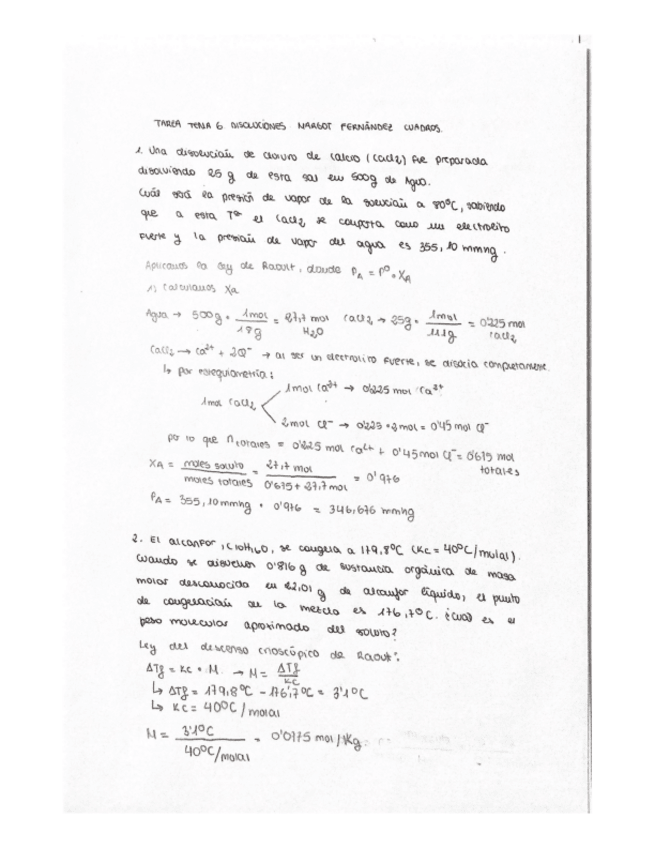 1
TAREA TEMA 6 DISOLUCIONES MARGOT FERNÁNDEZ CUADROS.
1. Una disolución de cloruro de calcio (CaCl2) fue preparada
disolviendo 25 g de esta sal en 500g de Agua.
Cuál será la presión de vapor de la solución a 80ºC, sabiendo
que a esta Tª el CaCl2 se comporta como un electrolito
fuerte y la presión de vapor del agua es 355,10 mmHg.
Aplicamos la ley de Raoult, donde PA = Pº · XA
1) calculamos XA
Agua → 500g · 1mol/18g = 27,7 mol H2O CaCl2 → 25g · 1mol/111g = 0'225 mol CaCl2
CaCl2 → Ca2+ + 2Cl- → al ser un electrolito fuerte, se disocia completamente.
↳ por estequiometría:
1mol Ca2+ → 0'225 mol Ca2+
1mol CaCl2
2mol Cl- → 0'225 · 2mol = 0'45 mol Cl-
por lo que n totales = 0'225 mol Ca2+ + 0'45 mol Cl- = 0'675 mol totales
XA = moles soluto/moles totales = 27,7 mol/0'675 + 27,7 mol = 0'976
PA = 355,10 mmHg · 0'976 = 346,676 mmHg
2. El alcanfor, C10H16O, se congela a 179,8ºC (Kc = 40ºC/molal).
Cuando se disuelven 0'816 g de sustancia orgánica de masa
molar desconocida en 22,01 g de alcanfor líquido, el punto
de congelación de la mezcla es 176,7ºC. ¿Cuál es el
peso molecular aproximado del soluto?
Ley del descenso crioscópico de Raoult:
ΔTf = Kc · M → M = ΔTf/Kc
↳ ΔTf = 179,8ºC - 176,7ºC = 3'1ºC
↳ Kc = 40ºC/molal
M = 3'1ºC/40ºC/molal = 0'0775 mol/1Kg